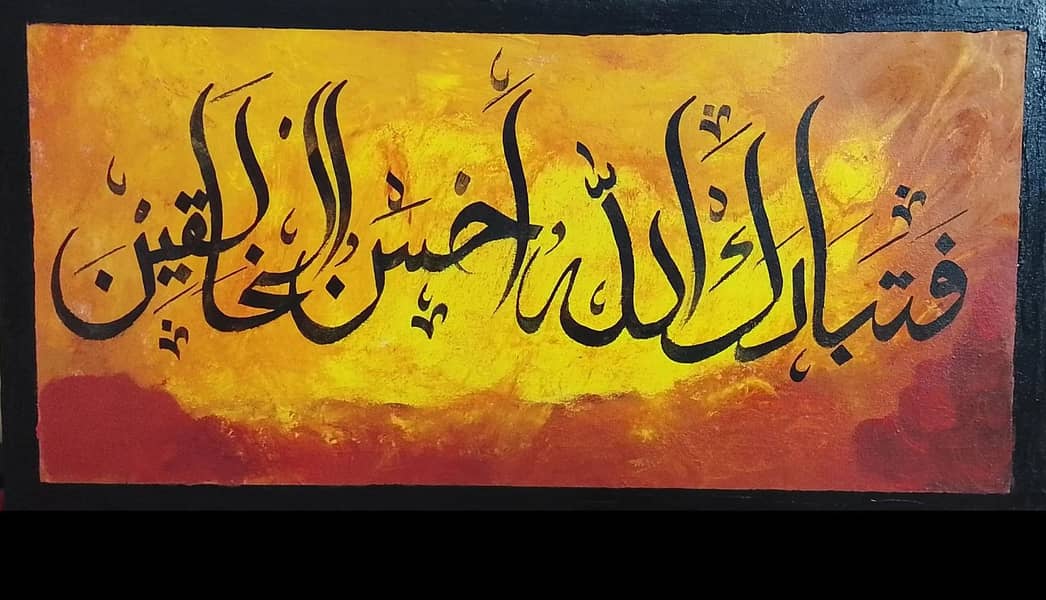 فتبارك الله أحسن الخالقين